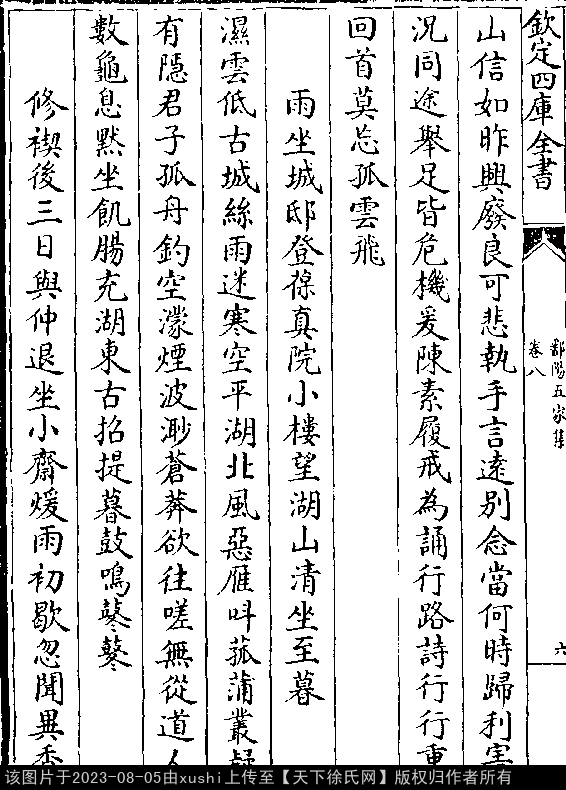 欽定四庫全書
鄱陽五家集
卷八
六
山信如昨興廢良可悲執手言逺别念當何時歸利害
况同途舉足皆危機爰陳素履戒為誦行路詩行行重
回首莫忘孤雲飛
雨坐城邸登葆真院小樓望湖山清坐至暮
濕雲低古城絲雨迷寒空平湖北風惡雁呌菰蒲叢疑
有隠君子孤舟釣空濛煙波渺蒼莽欲往嗟無從道人
數龜息黙坐飢腸充湖東古招提暮鼓鳴鼕鼕
修禊後三日與仲退坐小齋煖雨初歇忽聞異香
该图片于2023-08-05由xushi上传至【天下徐氏网】版权归作者所有